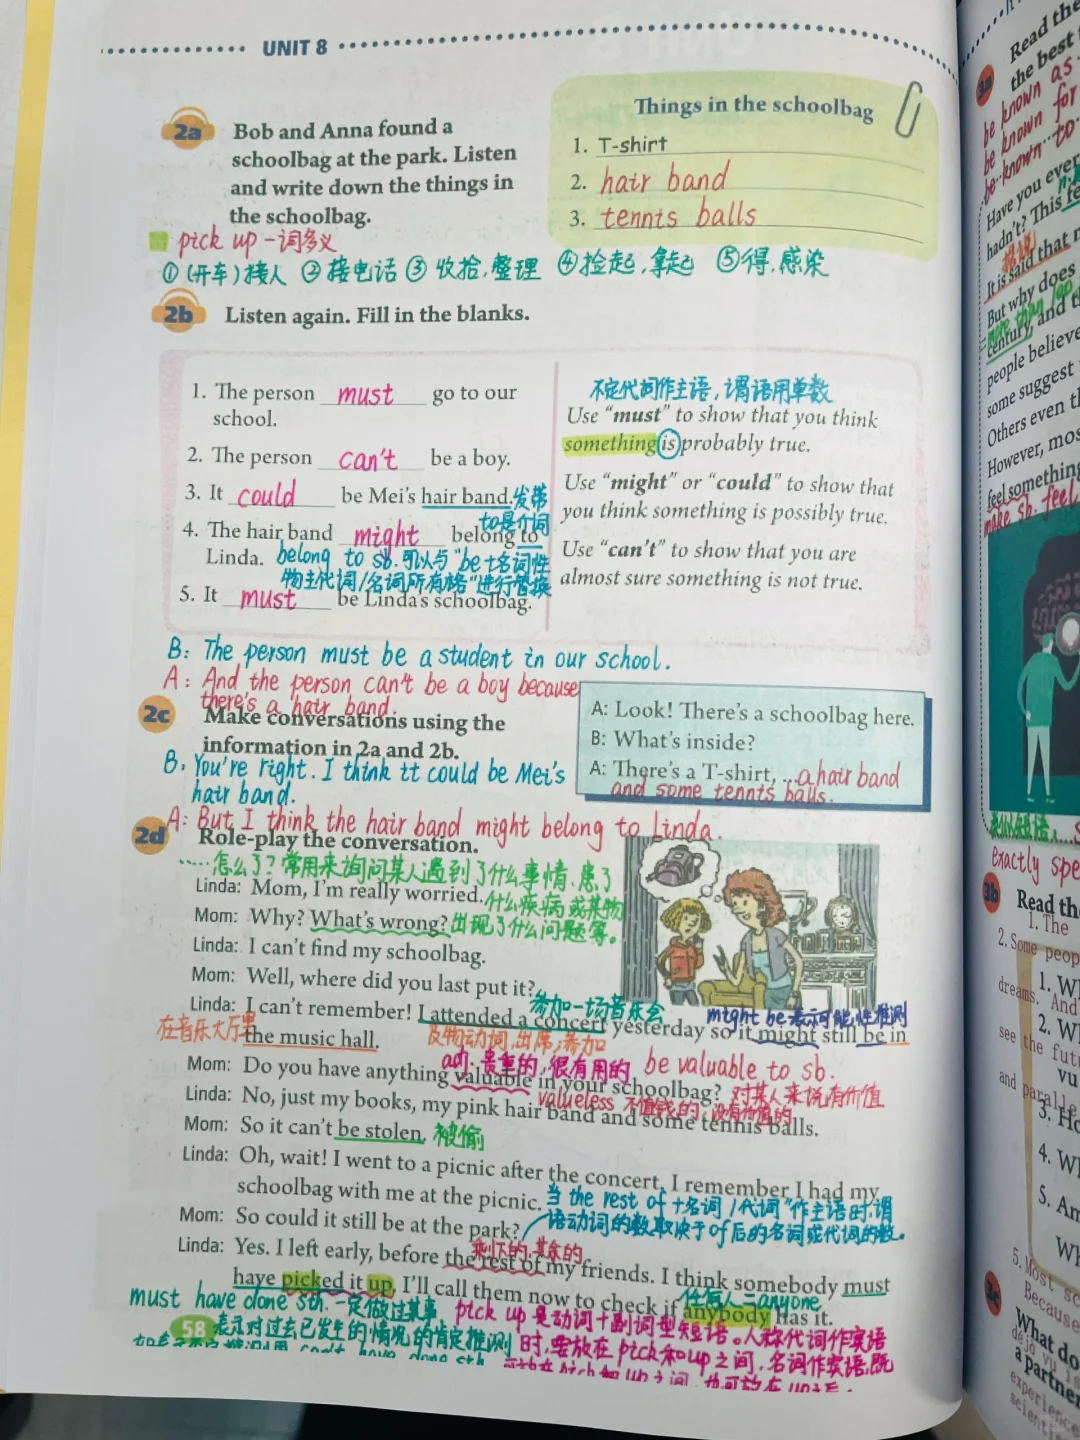 UNIT 8
2a Bob and Anna found a
schoolbag at the park. Listen
and write down the things in
the schoolbag.
Things in the schoolbag
1. T-shirt
2. hair band
3. tennis balls
pick up - 词多义
①(开车)接人 ②接电话 ③收拾,整理 ④捡起,拿起 ⑤得,感染
2b Listen again. Fill in the blanks.
1. The person must go to our
school.
2. The person can't be a boy.
3. It could be Mei's hair band. 发带
to是介词
4. The hair band might belong to
Linda. belong to sb. 可以与"be+名词性
物主代词/名词所有格"进行替换
5. It must be Linda's schoolbag.
不定代词作主语,谓语用单数
Use "must" to show that you think
something is probably true.
Use "might" or "could" to show that
you think something is possibly true.
Use "can't" to show that you are
almost sure something is not true.
B: The person must be a student in our school.
A: And the person can't be a boy because
there's a hair band.
2c Make conversations using the
information in 2a and 2b.
B: You're right. I think it could be Mei's
hair band.
A: But I think the hair band might belong to Linda.
A: Look! There's a schoolbag here.
B: What's inside?
A: There's a T-shirt, ... a hair band
and some tennis balls.
2d Role-play the conversation.
……怎么了?常用来询问某人遇到了什么事情、患了
什么疾病或某物
Linda: Mom, I'm really worried.
Mom: Why? What's wrong? 出现了什么问题等。
Linda: I can't find my schoolbag.
Mom: Well, where did you last put it?
参加一场音乐会
might be 表示可能性推测
Linda: I can't remember! I attended a concert yesterday so it might still be in
在音乐大厅里 the music hall. 及物动词,出席;参加
adj. 贵重的,很有用的 be valuable to sb.
Mom: Do you have anything valuable in your schoolbag? 对某人来说有价值
valueless 不值钱的,没有价值的
Linda: No, just my books, my pink hair band and some tennis balls.
Mom: So it can't be stolen. 被偷
Linda: Oh, wait! I went to a picnic after the concert. I remember I had my
schoolbag with me at the picnic. 当the rest of +名词/代词"作主语时,谓
Mom: So could it still be at the park? 语动词的数取决于of后的名词或代词的数。
剩下的,其余的
Linda: Yes. I left early, before the rest of my friends. I think somebody must
have picked it up. I'll call them now to check if anybody has it.
任何人=anyone
must have done sth. 一定做过某事
表示对过去已发生的情况的肯定推测
58
can't have done sth.
pick up 是动词+副词型短语。人称代词作宾语
时,要放在pick和up之间,名词作宾语,既
可放在pick和up之间,也可放在up之后。
3a Read the
the best
be known as
be known for
be known to
Have you ever
hadn't? This fe
据说
It is said that
But why does
more than
century, and t
people believe
some suggest
Others even t
However, mos
feel something
make sb. feel
exactly spe
3b Read th
1. The
2. Some peop
dreams. And
see the fut
and paralle
1. W
2. W
3. Ho
4. W
5. Am
5. Most sc
Because
3c What do
a partner
déjà vu is
experience
scientis